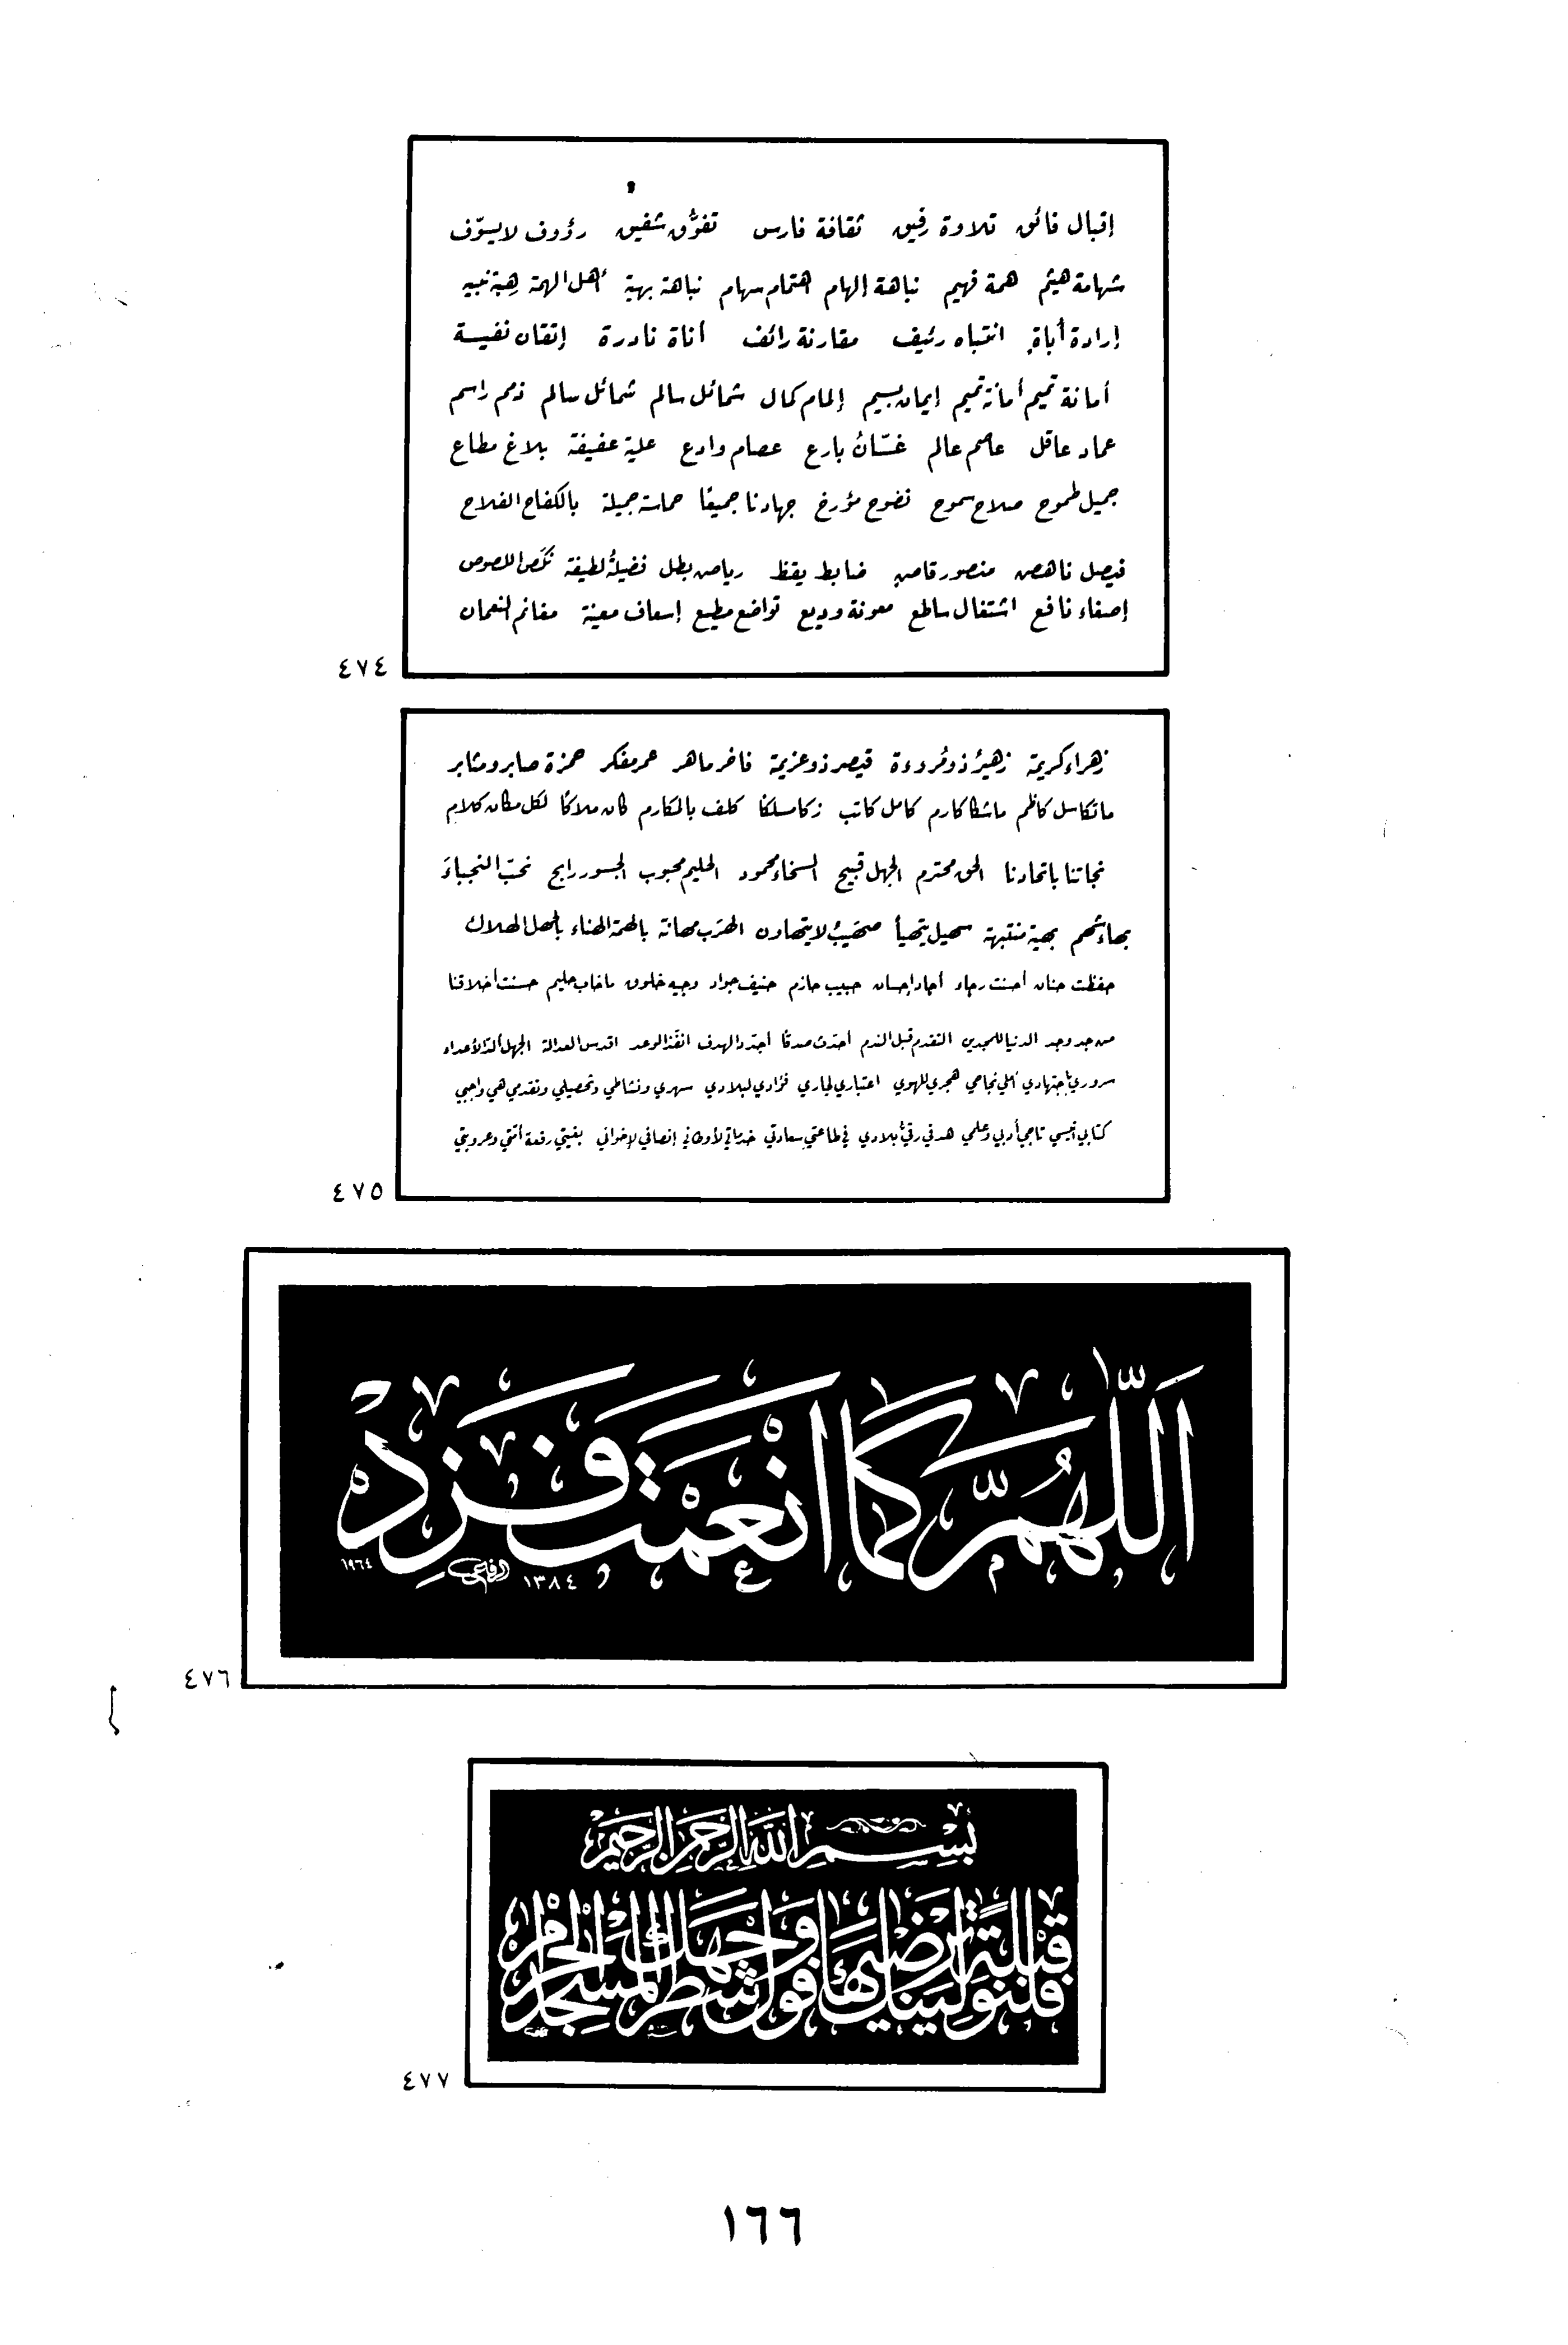 إقبال فائق تلاوة رفيق ثقافة فارس تفوُّق شفيق رؤوف لا يسوّف
شهامة هيثم همة فهيم نباهة إلهام اهتمام سهام نباهة بهية أهل الهمة هيبة نبيه
إرادة أباة انتباه رئيف مقارنة رائف أناة نادرة إتقان نفيسة
أمانة تميم أمانة تميم إيمان بسيم إلمام كمال شمائل سالم شمائل سالم ذمم راسم
عماد عاقل عاصم عالم غسّان بارع عصام وادع علية عفيفة بلاغ مطاع
جميل طموح صلاح سموح نضوح مؤرخ جهادنا جميعًا حماسة جميلة بالكفاح الفلاح
فيصل ناهض منصور قاص ضابط يقظ رياض بطل فضيلةُ لطيفة نكَص اللصوص
إصغاء نافع اشتغال ساطع معونة وديع تواضع مطيع إسعاف معينة مغانم النعمان
٤٧٤
زهراء كريمة زهيرُ ذو مُروءة قيصر ذو عزيمة فاخر ماهر عمر مفكر حمزة صابر ومثابر
ما تكاسل كاظم ما شكا كارم كامل كاتب زكا مسلكًا كلف بالمكارم كان ملاكًا لكل مكان كلام
نجاتنا باتحادنا الحق محترم الجهل قبيح السخاء محمود الحليم محبوب الجسور رابح نحبّ النجباءَ
بهاء شهم بهية منتبهة سهيل يتهيأ صهيبُ لا يتهاون الهرَب مهانة بالهمة الهناء بالجهل الهلاك
حفظت حنان أحسنت رجاء أجاد إحسان حبيب حازم حنيف جواد وجيه خلوق ما خاب حليم حسنت أخلاقنا
من جد وجد الدنيا للمجدين التقدم قبل الندم أحدّث صدقًا أجدد الهدف انفّذ الوعد اقدس العدالة الجهل ألدّ الأعداء
سروري باجتهادي أملي نجاحي هجري للهوي اعتباري لجاري فؤادي لبلادي سهري ونشاطي وتحصيلي وتقدمي هي واجبي
كتابي أنيسي تاجي أدبي وعلمي هدفي رقيُّ بلادي في طاعتي سعادتي خدماتي لأوطاني إنصافي لإخواني بغيتي رفعة أمتي وعروبتي
٤٧٥
اَللّٰهُمَّ كَمَا اَنْعَمْتَ فَزِدْ
١٣٨٤ الرفاعي ١٩٦٤
٤٧٦
بِسْمِ اللّٰهِ الرَّحْمٰنِ الرَّحِيمِ
فَلَنُوَلِّيَنَّكَ قِبْلَةً تَرْضٰيهَا فَوَلِّ وَجْهَكَ شَطْرَ الْمَسْجِدِ الْحَرَامِ
٤٧٧
١٦٦